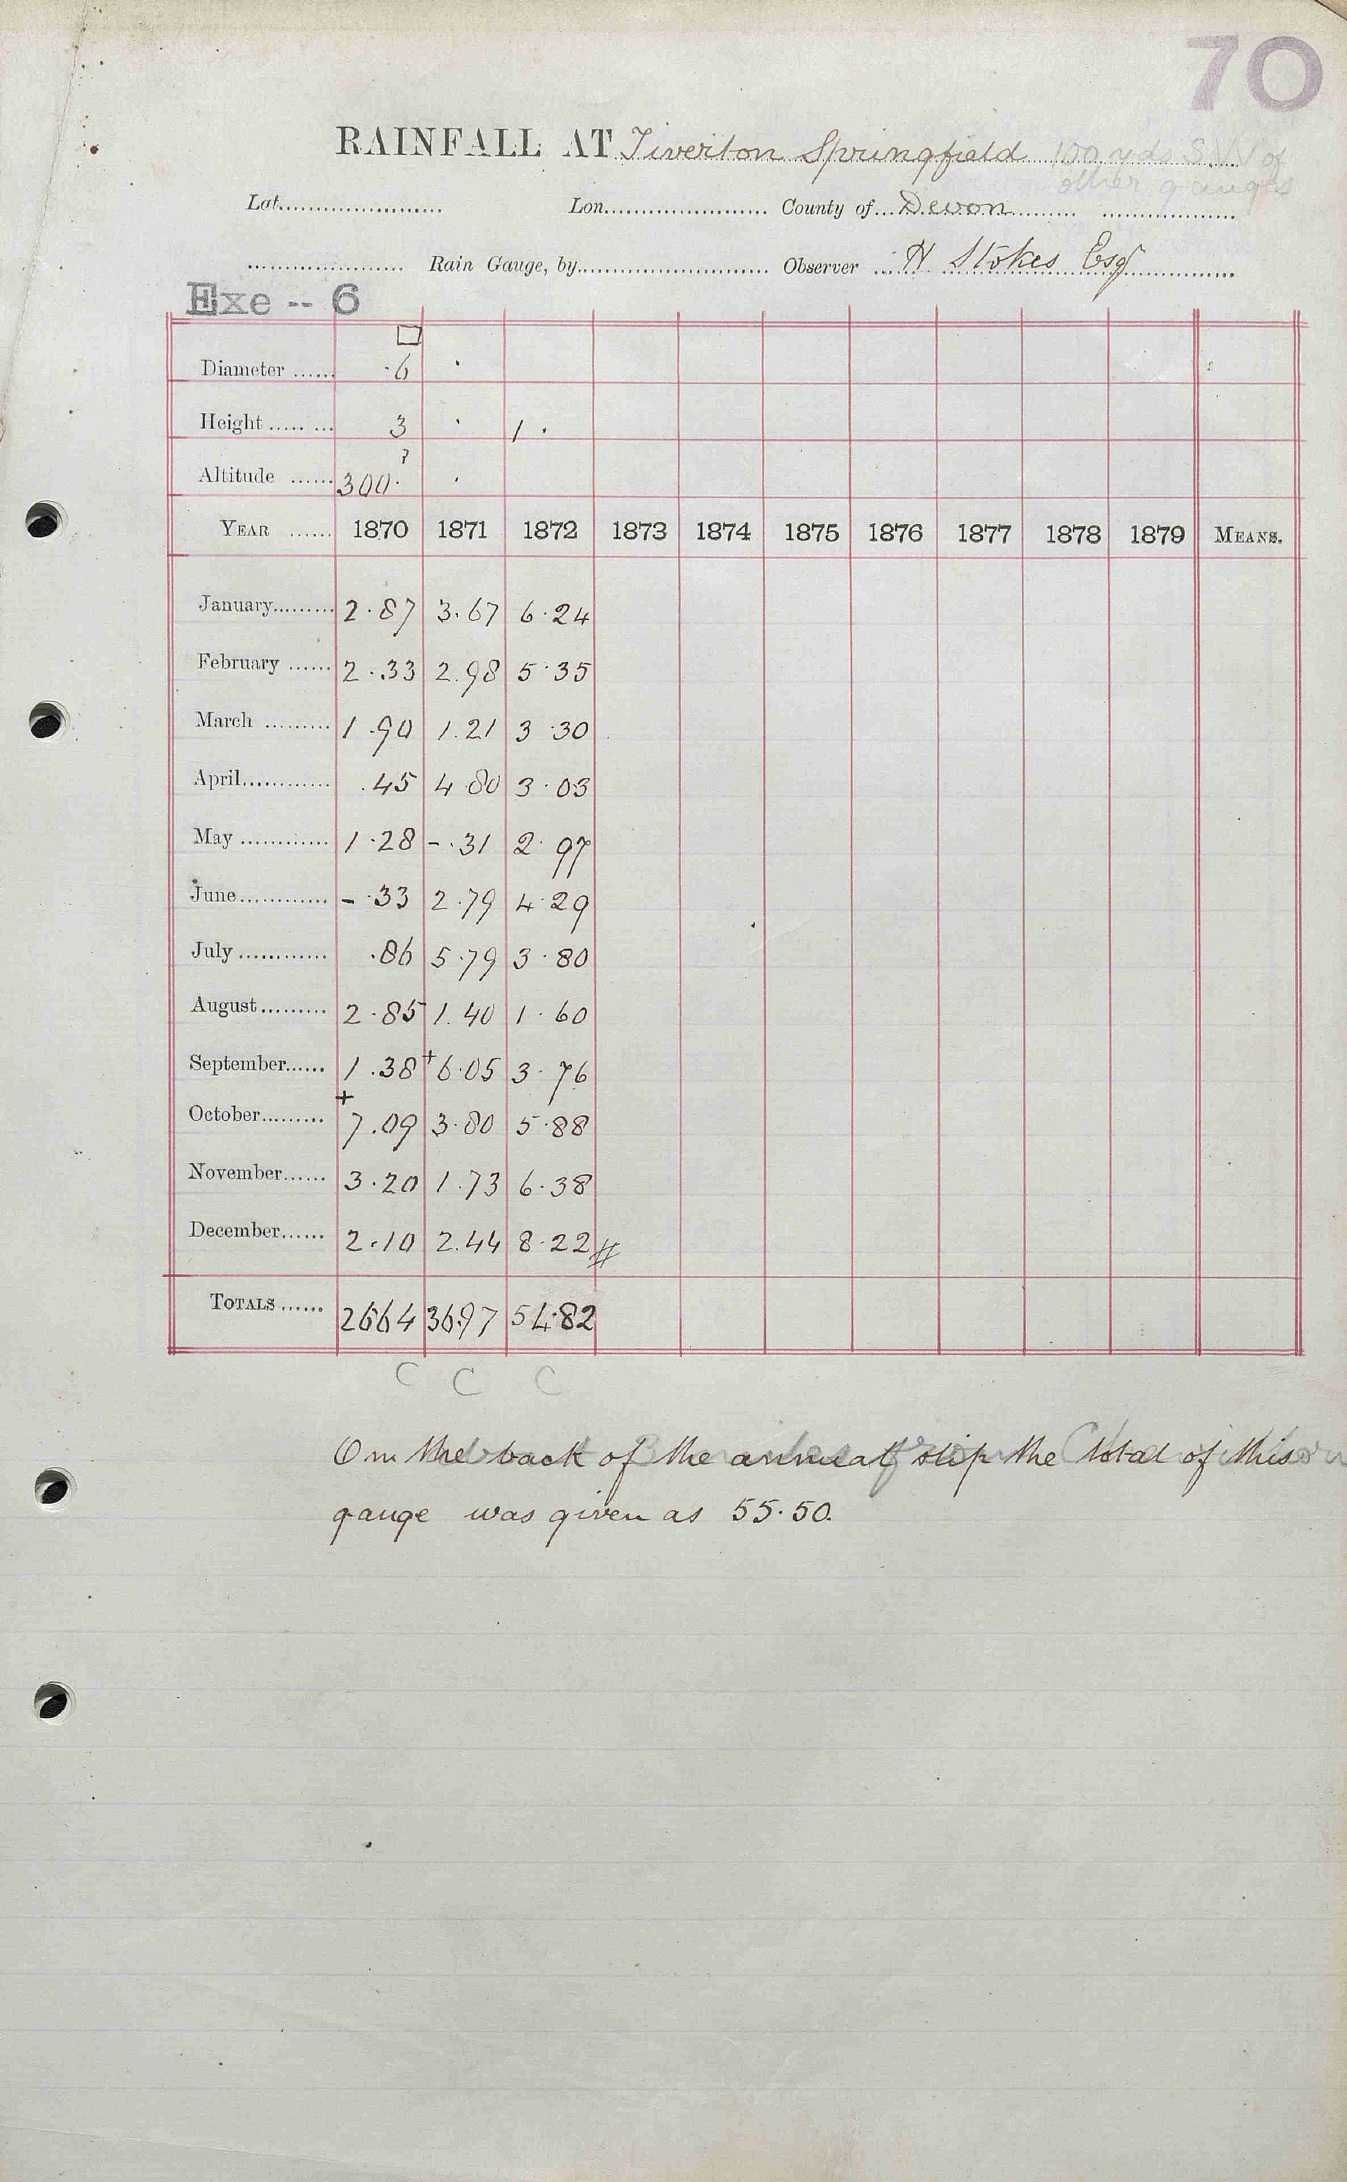 70
RAINFALL AT Tiverton Springfield 100 yds S.W of
other gauges
Lat...................... Lon...................... County of... Devon
Rain Gauge, by...................... Observer ... H Stokes Esq
Exe -- 6
Diameter ...... 6
Height ..... ... 3 1
Altitude ...... 300 ?
YEAR ...... 1870 1871 1872 1873 1874 1875 1876 1877 1878 1879 MEANS.
January......... 2.87 3.67 6.24
February ...... 2.33 2.98 5.35
March ......... 1.90 1.21 3.30
April............ .45 4.80 3.03
May ............ 1.28 -.31 2.97
June............ -.33 2.79 4.29
July ............ .86 5.79 3.80
August......... 2.85 1.40 1.60
September...... 1.38 +6.05 3.76
October......... +7.09 3.80 5.88
November...... 3.20 1.73 6.38
December...... 2.10 2.44 8.22 #
TOTALS ...... 26.64 36.97 54.82
C C C
On the back of the annual slip the total of this
gauge was given as 55.50.